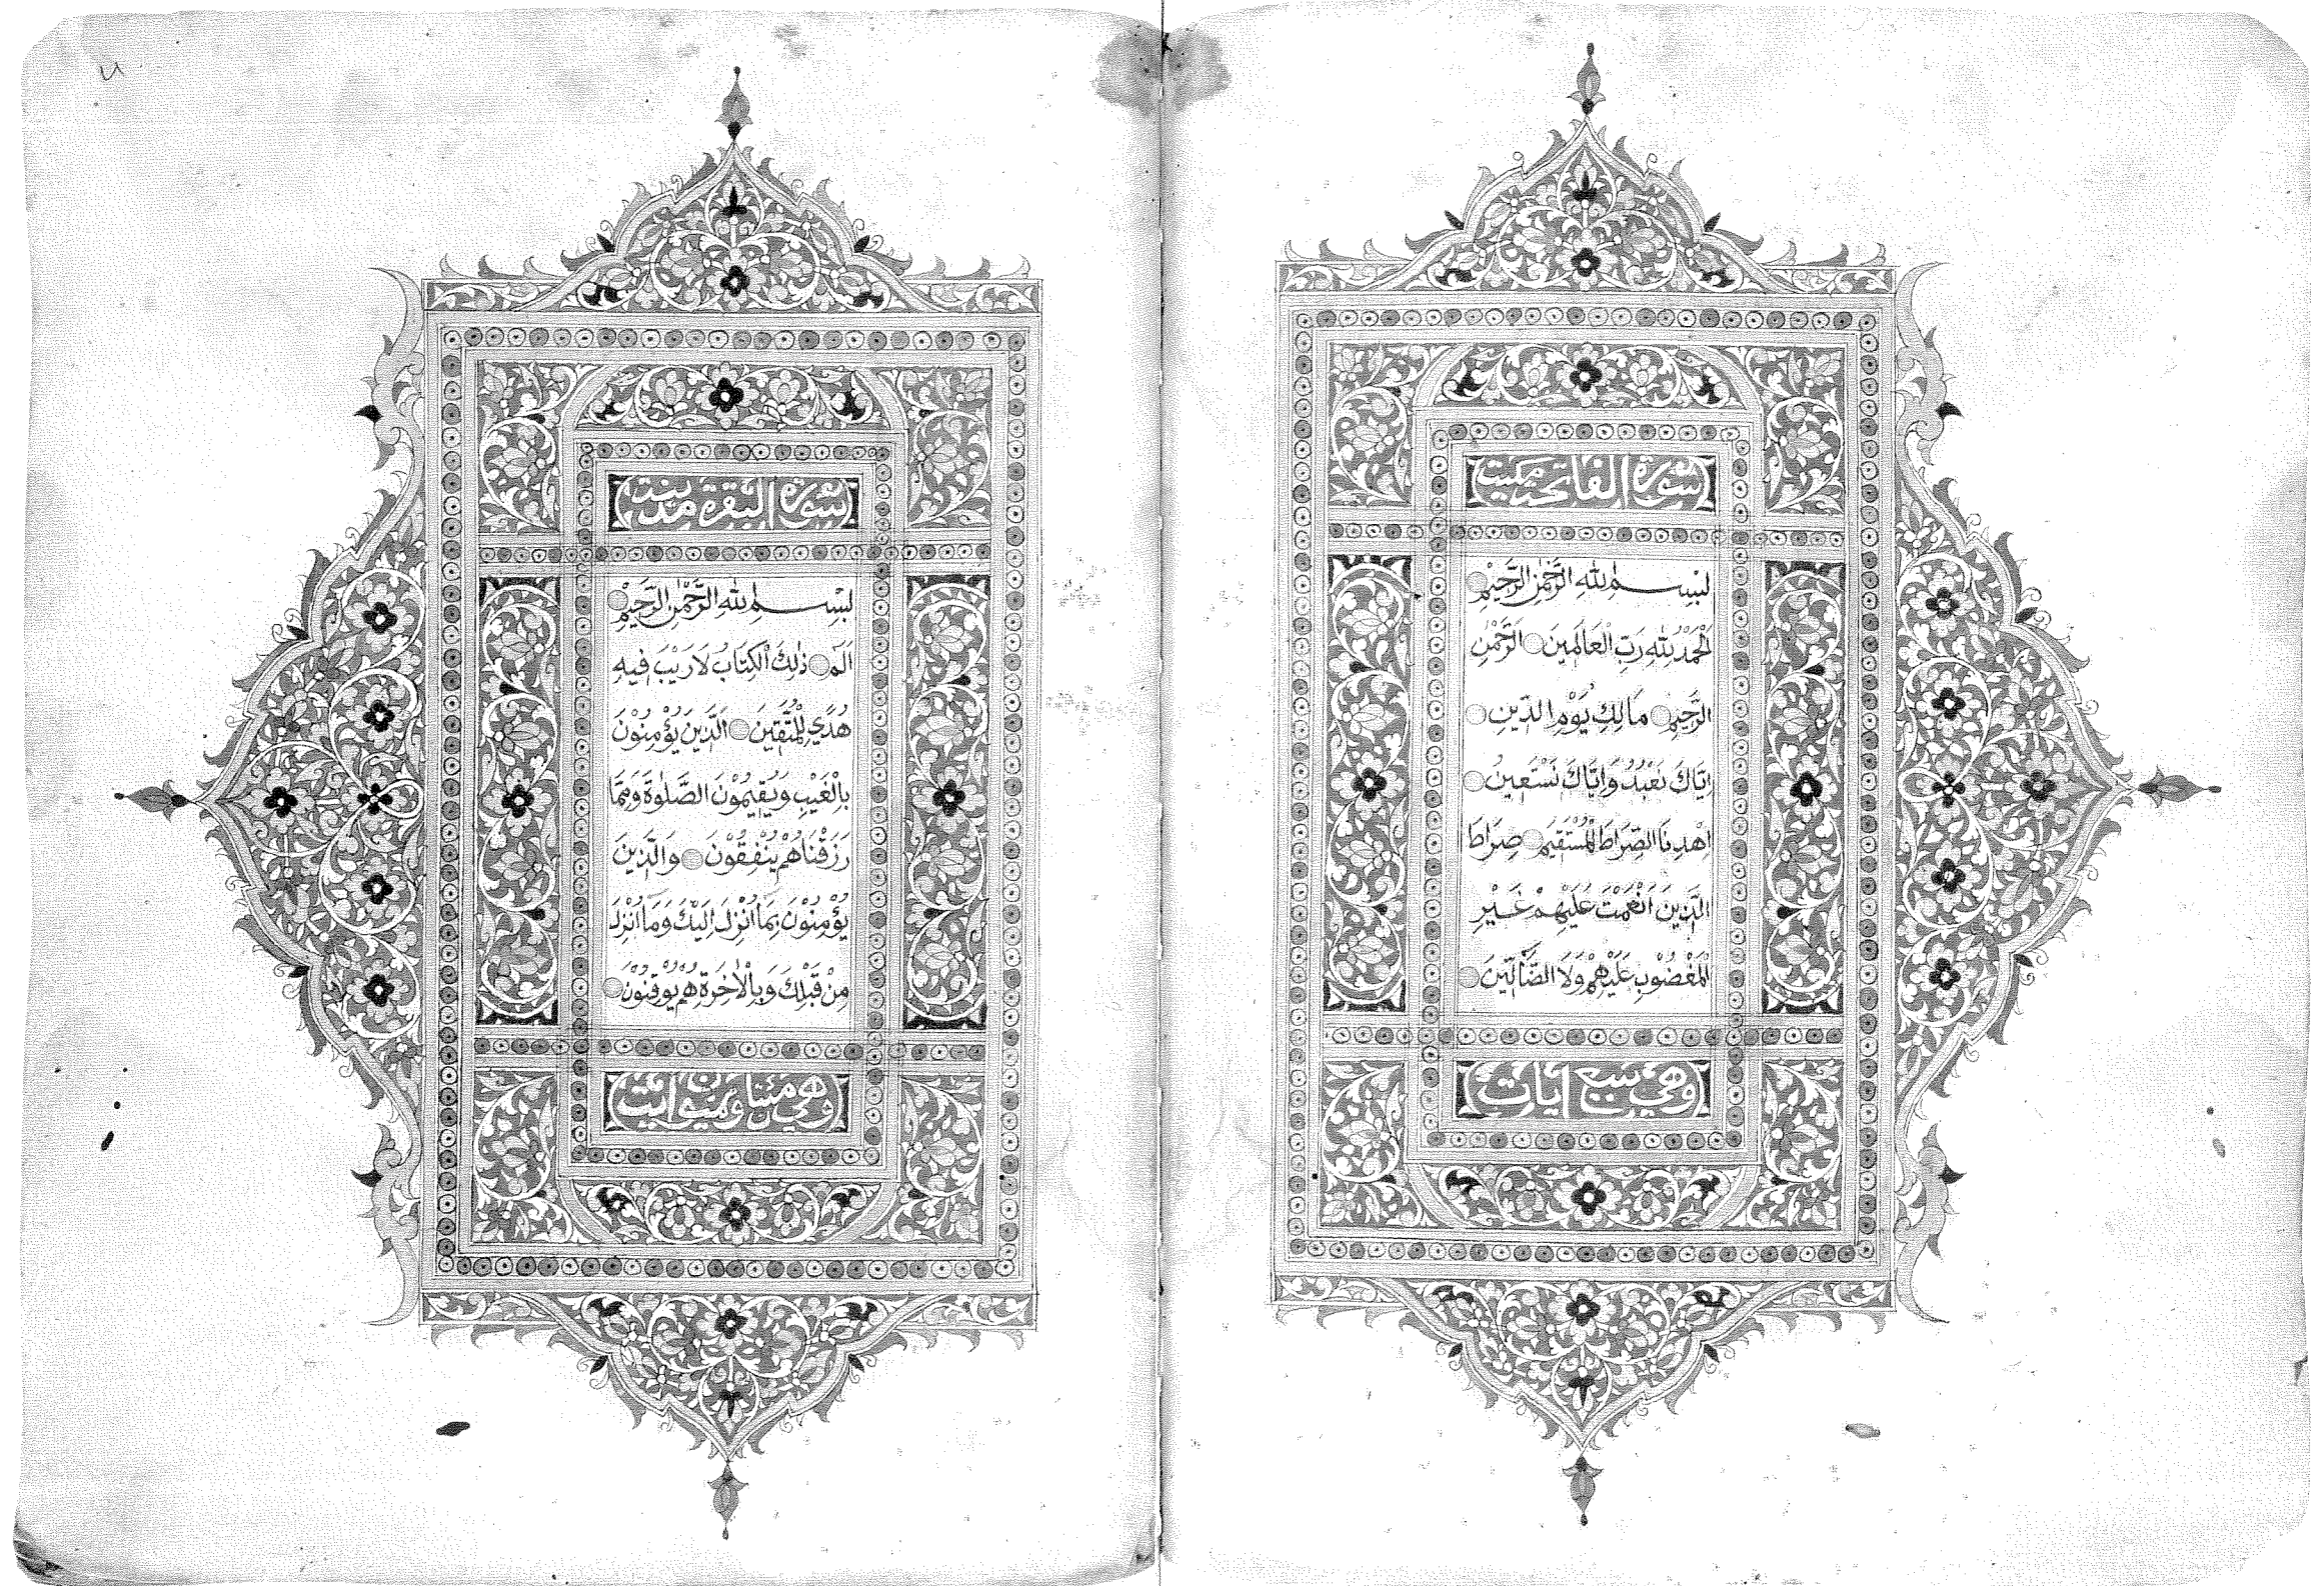 سورة الفاتحة مكية
بسم الله الرحمن الرحيم
اَلْحَمْدُ لِلّٰهِ رَبِّ الْعَالَمِينَ الرَّحْمٰنِ
الرَّحِيمِ مَالِكِ يَوْمِ الدِّينِ
اِيَّاكَ نَعْبُدُ وَاِيَّاكَ نَسْتَعِينُ
اِهْدِنَا الصِّرَاطَ الْمُسْتَقِيمَ صِرَاطَ
الَّذِينَ اَنْعَمْتَ عَلَيْهِمْ غَيْرِ
الْمَغْضُوبِ عَلَيْهِمْ وَلَا الضَّالِّينَ
وهي سبع ايات
سورة البقرة مدنية
بسم الله الرحمن الرحيم
الٓمٓ ذٰلِكَ الْكِتَابُ لَا رَيْبَ فِيهِ
هُدًى لِلْمُتَّقِينَ اَلَّذِينَ يُؤْمِنُوْنَ
بِالْغَيْبِ وَيُقِيمُوْنَ الصَّلٰوةَ وَمِمَّا
رَزَقْنَاهُمْ يُنْفِقُوْنَ وَالَّذِينَ
يُؤْمِنُوْنَ بِمَا اُنْزِلَ اِلَيْكَ وَمَا اُنْزِلَ
مِنْ قَبْلِكَ وَبِالْاٰخِرَةِ هُمْ يُوقِنُوْنَ
وهي مئتان و ايت